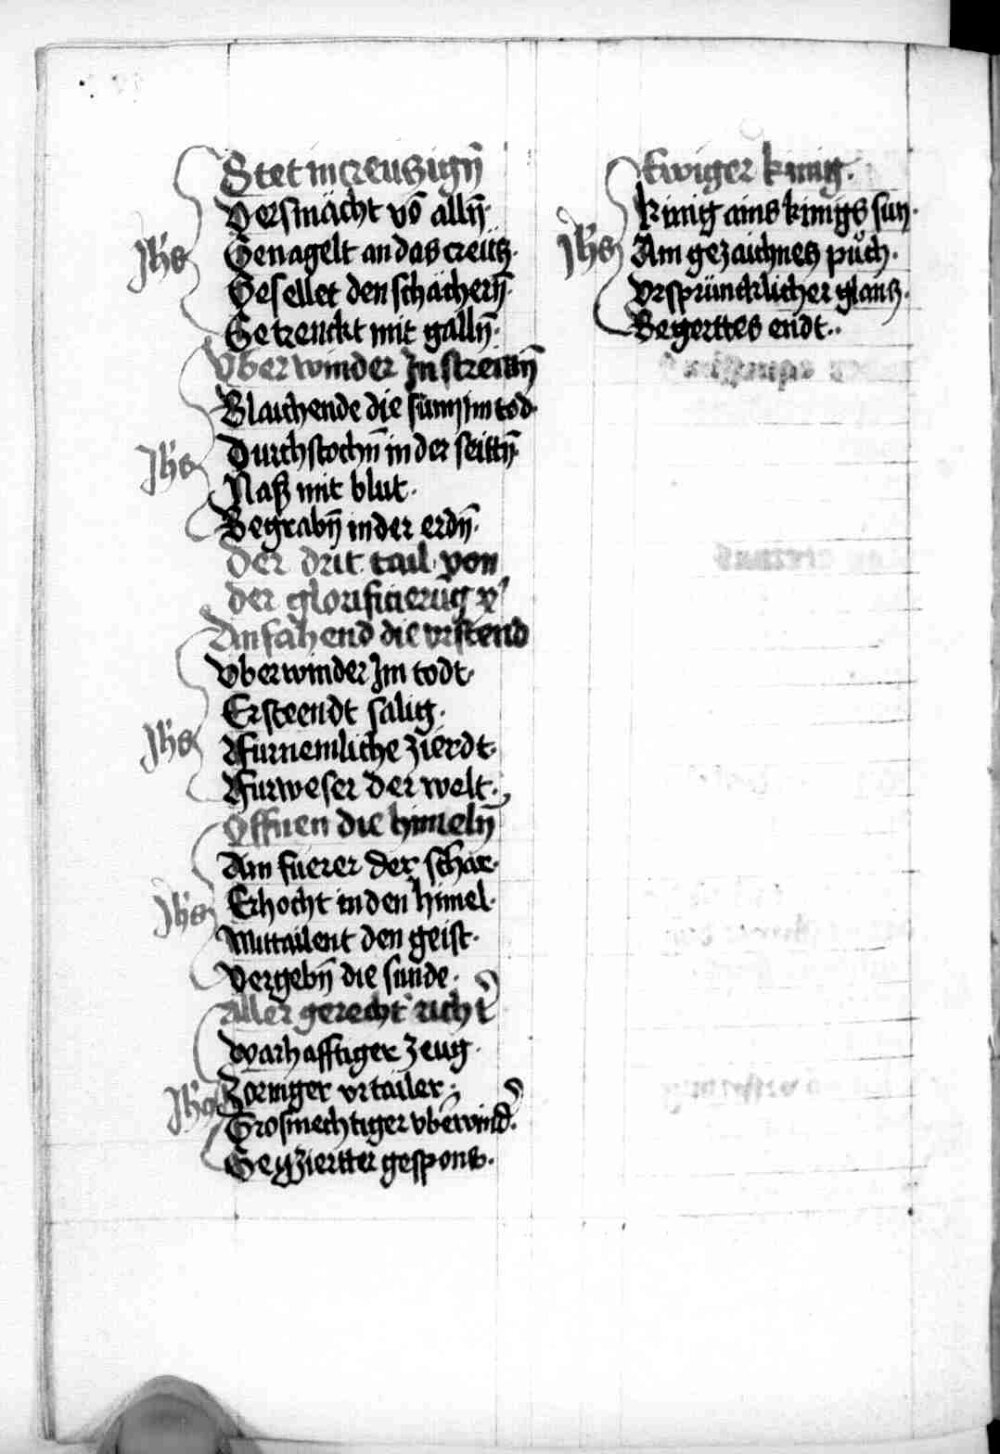 Stet in creuczigṉ̄
Versmächt vō allṉ̄·
Jhs Genagelt an das creücz·
Gesellet den schächerṉ̄·
Getrenckt mit gallṉ̄·
Vberwinder Jn streittṉ̄
Blaichende die sunn im tod·
Jhs Durchstochn̄ in der seittṉ̄·
Naß mit blut·
Begrabṉ̄ in der erdṉ̄·
Der drit tail von
der glorificierūg xͥ
Anfahend die vrstend
Vberwinder Jm todt·
Ersteendt salig·
Jhs Furnemliche zierdt·
Furweser der welt·
Offnen die himelṉ̄
Ain fuerer der schar·
Jhs Erhocht in den himel·
Mittailent den geist·
Vergebṉ̄ die sunde·
Aller gerecht richt̾
Warhafftiger zeug·
Jhs Zorniger vrtailer·
Grosmechtiger vberwind̾·
Geziertter gespons·
Ewiger kinig·
Kinig ains kinigs sun·
Jhs Ain gezaichnes püch·
Vrsprüncklicher glancz·
Begerttes endt··